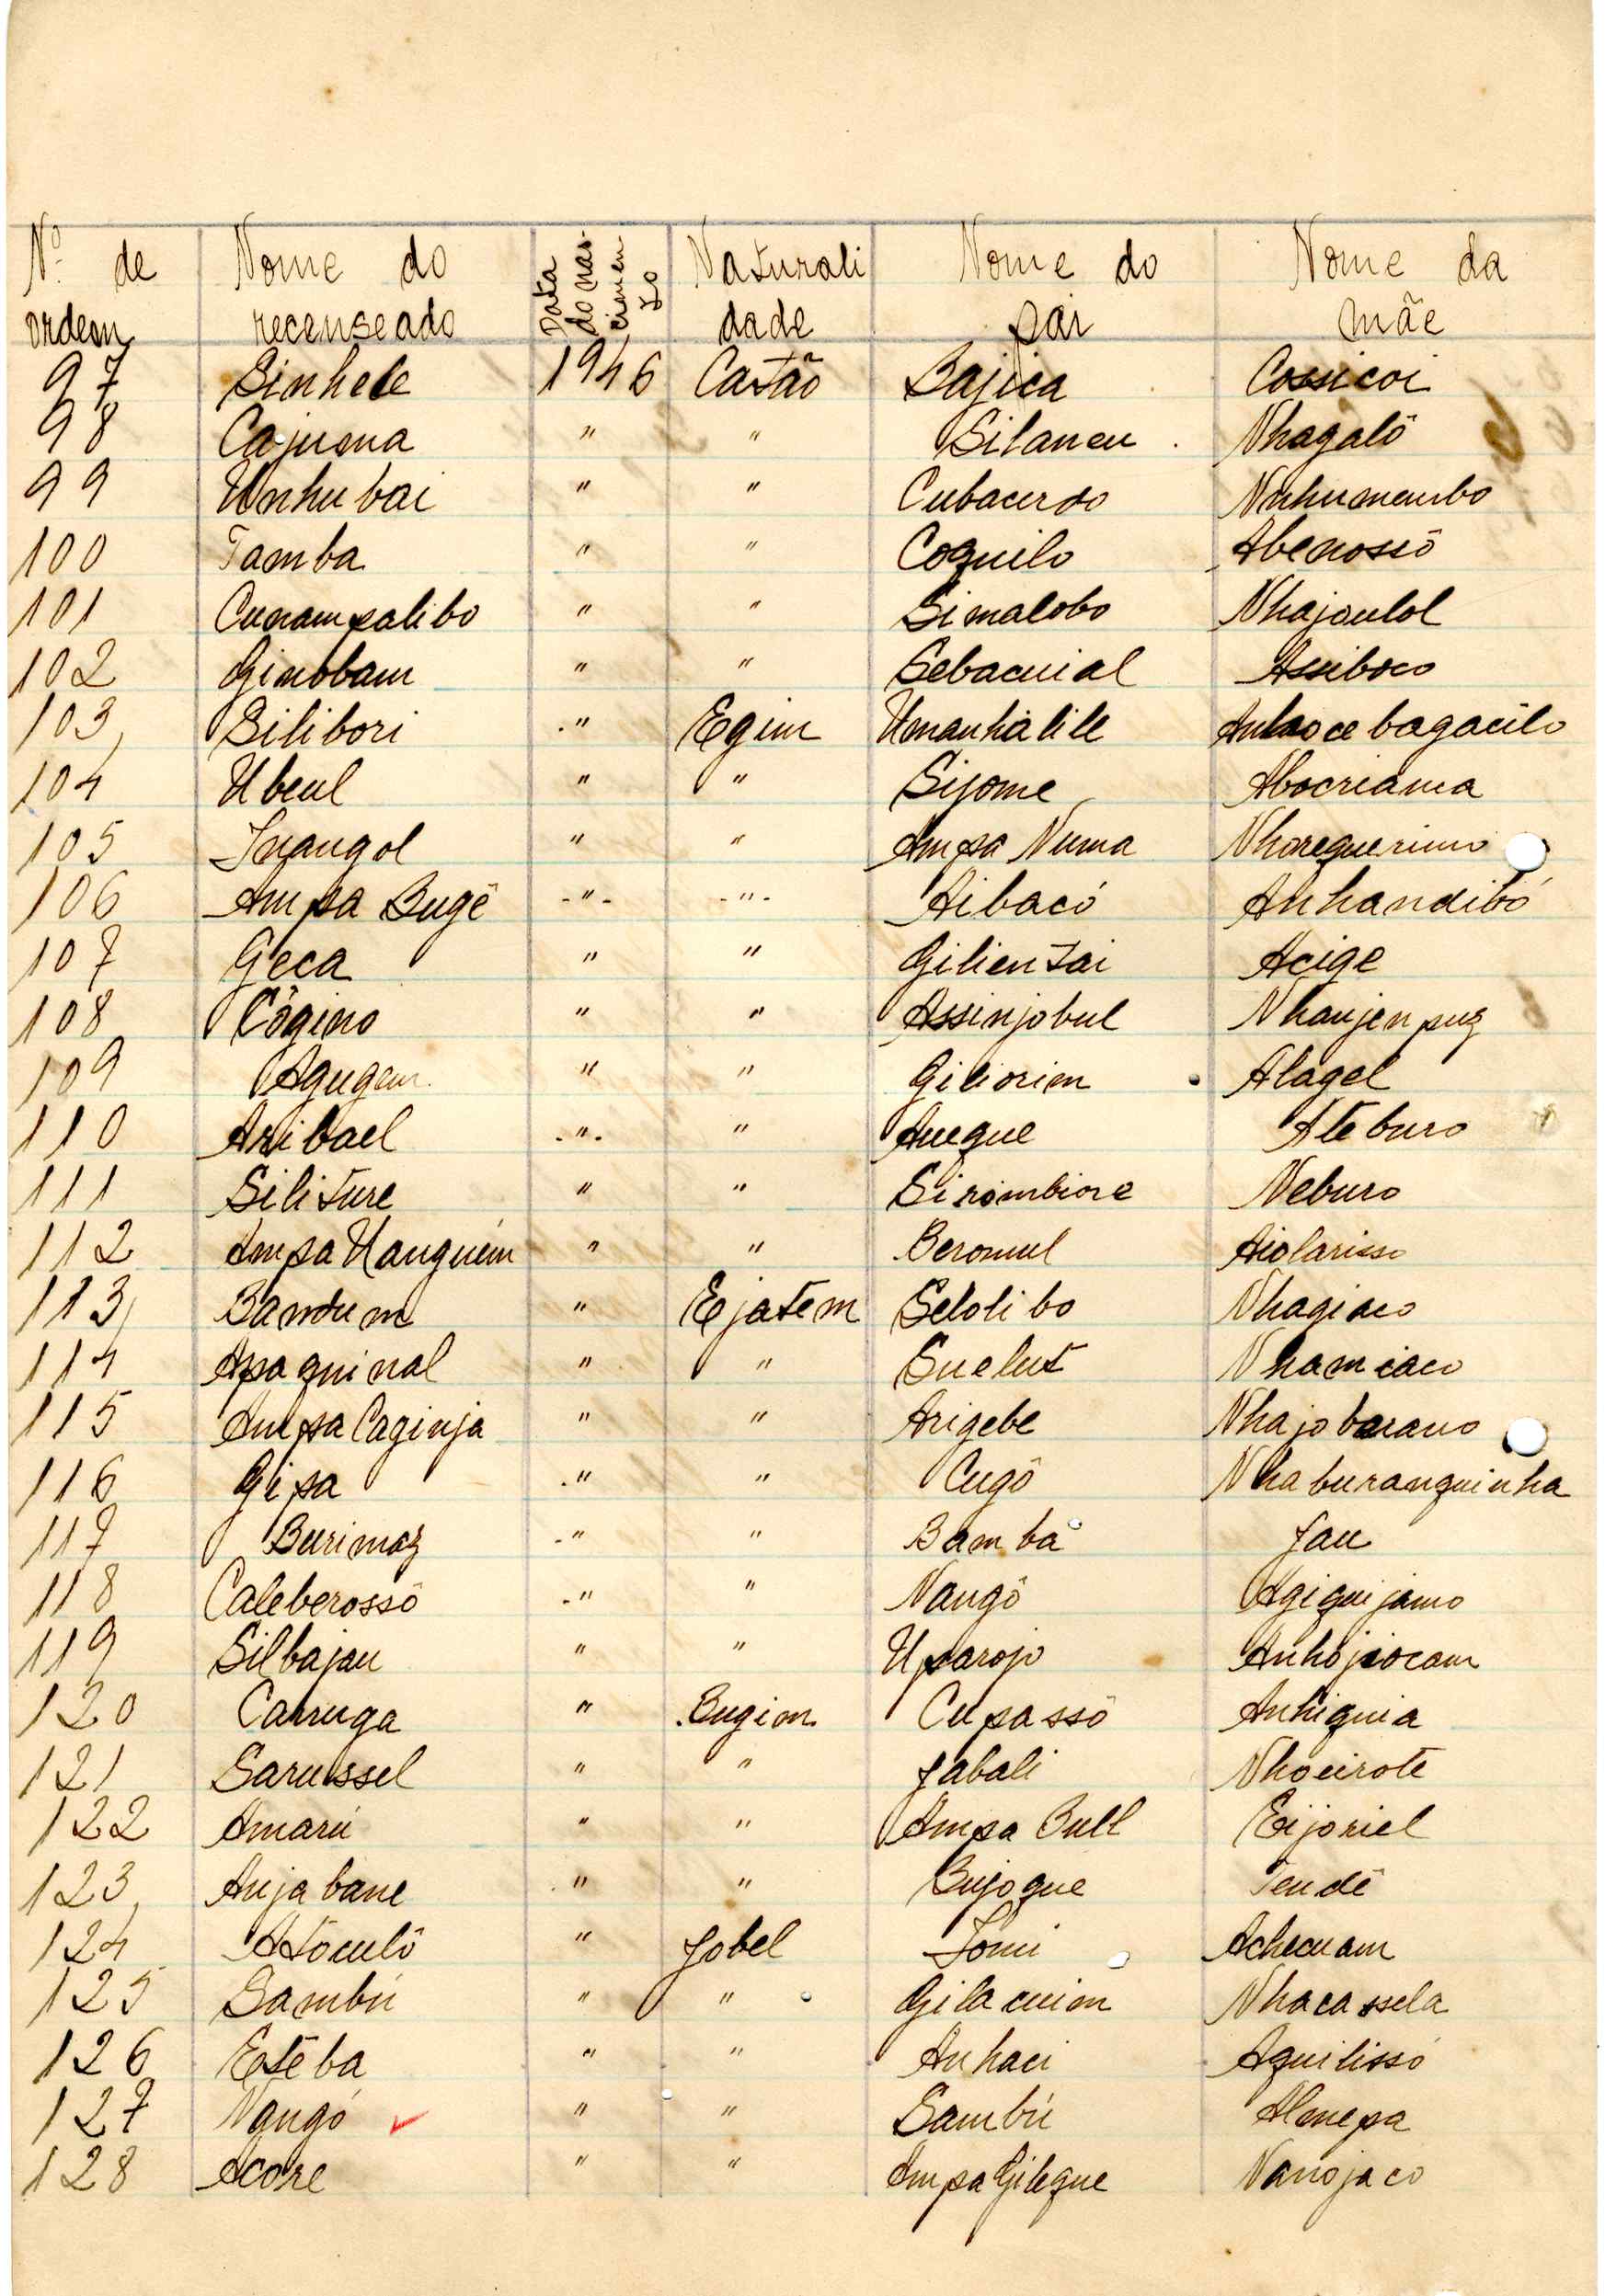 Nº de ordem | Nome do recenseado | Data do nascimento | Naturalidade | Nome do pai | Nome da mãe
97 Sinhele 1946 Castão Bajica Cossicoi
98 Cajuma " " Silaneu Nhagalô
99 Unhubai " " Cubacerdo Nnhumembo
100 Tamba " " Coquilo Abenossô
101 Cunampalibo " " Simalobo Nhajoulol
102 Ginobam " " Sebacuial Assiboco
103 Silibori " Egim Umanhalile
104 Ubeul " " Sijome Abocriama
105 Inangol " " Ampa Numa Nhoreguerimo
106 Ampa Bugê " " Aibacó Anhandibó
107 Geca " " Gilientai Acige
108 Côgino " " Assinjobul
109 Agugem " " Giliorim Alagel
110 Aribael " " Anegue Ateburo
111 Siliture " " Sirimbiore Neburo
112 Ampa Uanguem " " Beromul Aiolarisso
113 Bandum " Ejatem Selolibo Nhagiaco
114 Apaquinal " " Suelut Nhamiaco
115 Ampa Caginja " " Arigebe Nhajobarano
116 Gipa " " Cugô Nhaburanguinha
117 Burimaz " " Bamba Jau
118 Caleberossô " " Nangô Agiguijamo
119 Silbajau " " Uparojo Anhojiocam
120 Carruga " Bugim Cupassô Anhiguia
121 Sarussel " " Jabali Nhoeirote
122 Amarú " " Ampa Bull Eijoriel
123 Anjabane " " Bujogue Tendê
124 Atôculô " Jobel Tomi Achecuam
125 Sambú " " Gilacuim Nhacassela
126 Etêba " " Anhaci Aguilissó
127 Nangó " " Sambú Almepa
128 Acore " " Ampa Gilegue Nanojaco